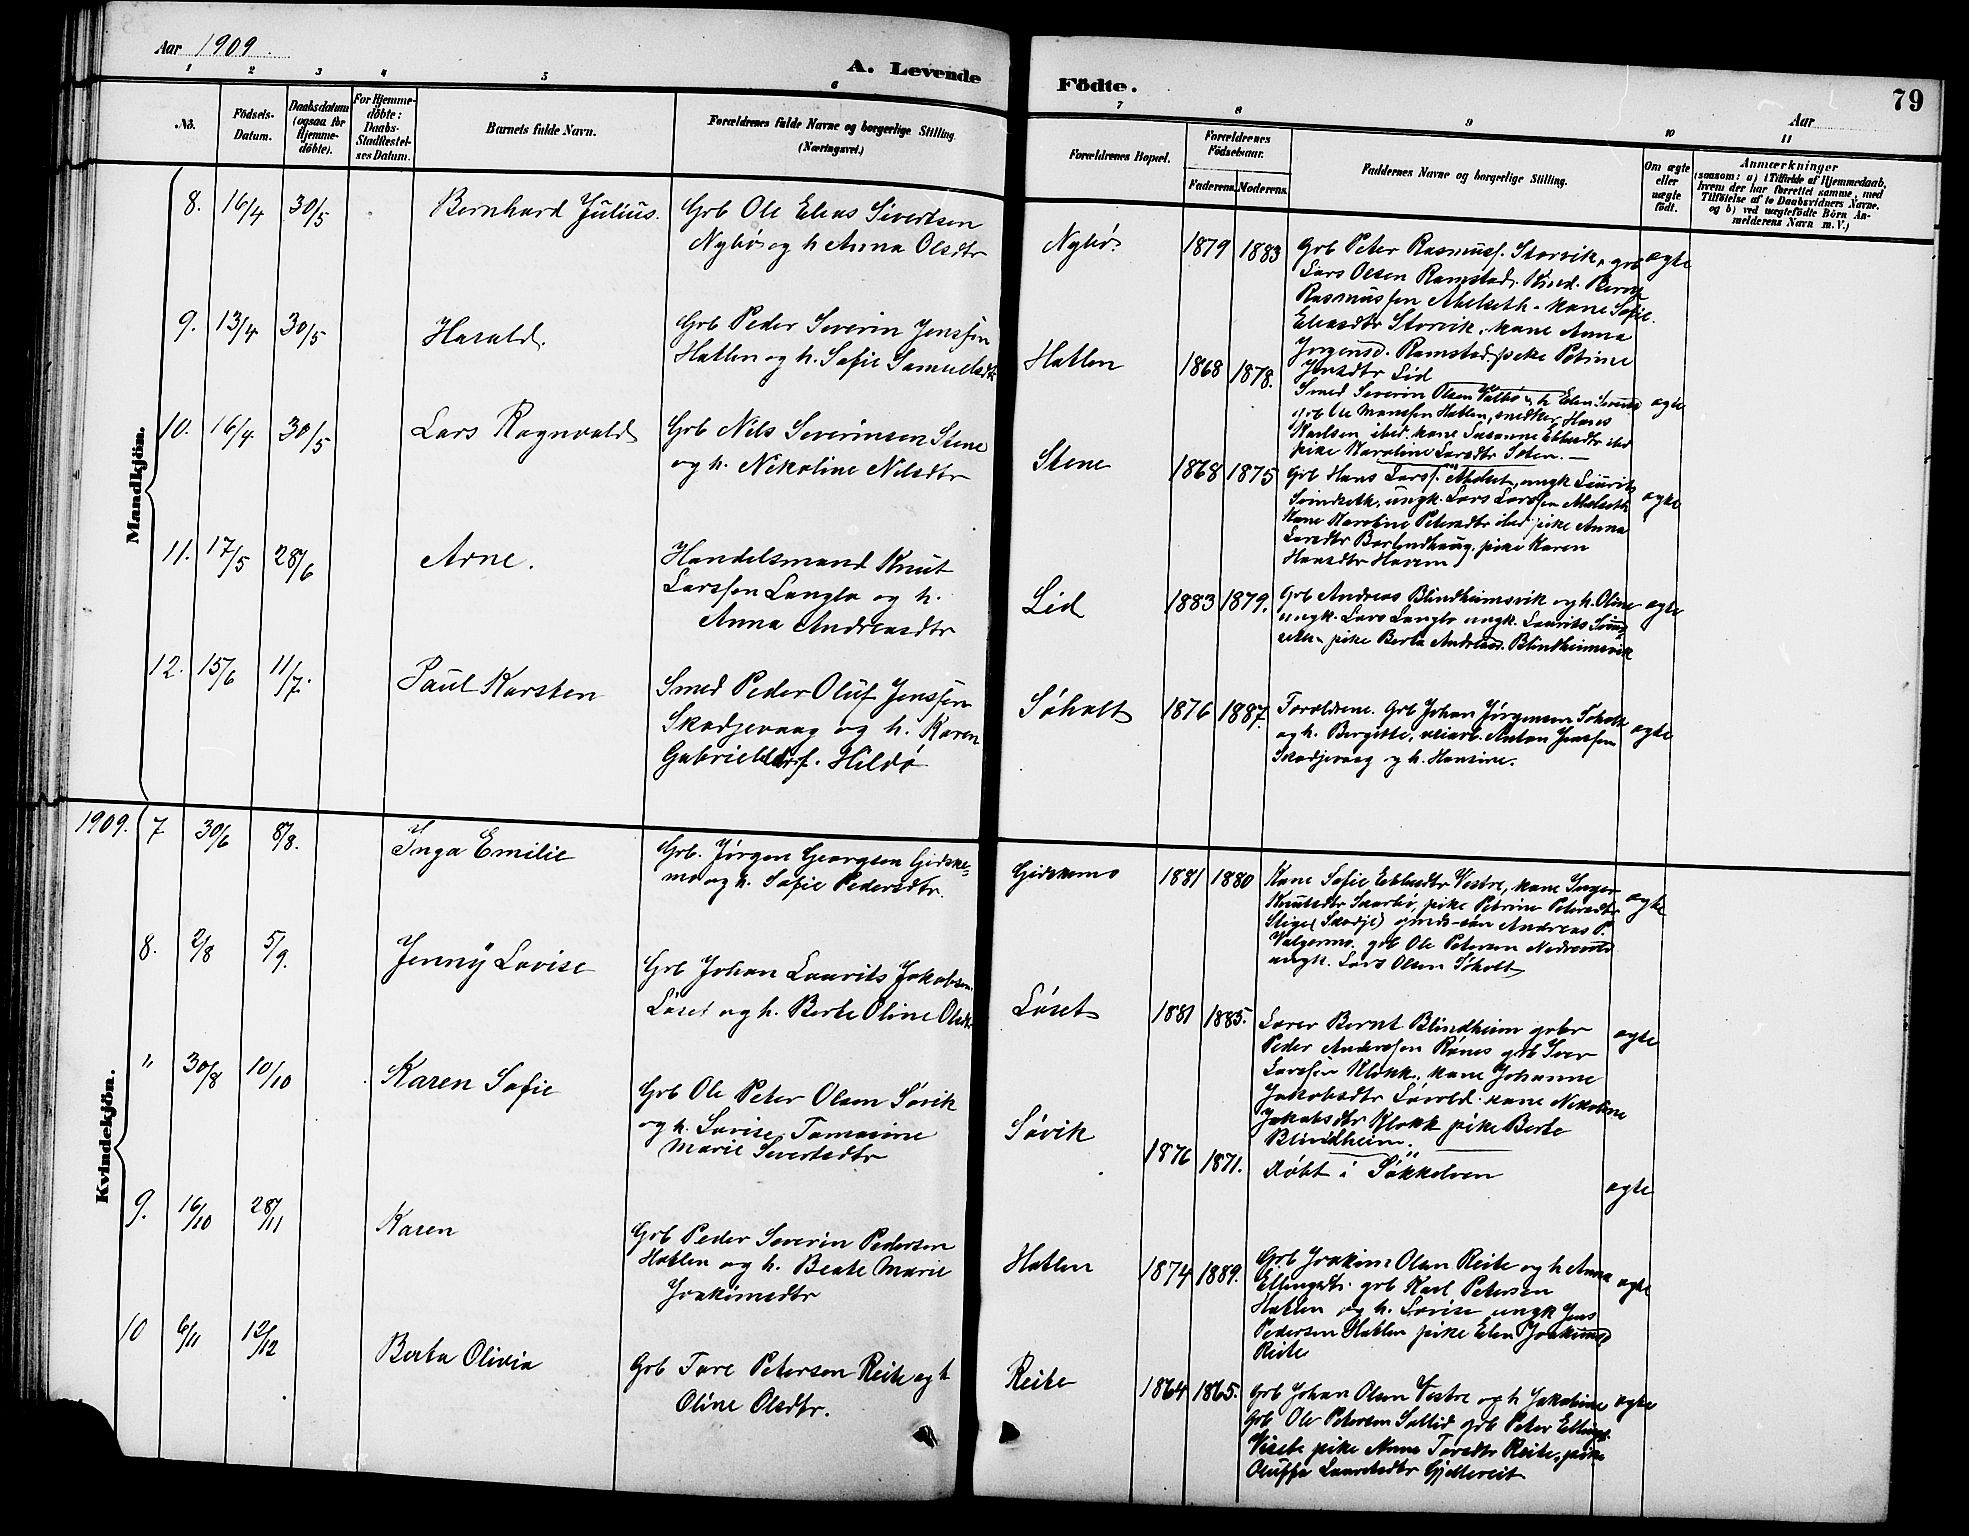 Aar 1909.
A. Levende
Födte.
79
Aar
1 2 3 4 5 6
7 8 9 10 11
No.
Födsels-Datum.
Daabsdatum (ogsaa for Hjemme-döbte).
For Hjemme-döbte: Daabs-Stadfæstel-ses Datum.
Barnets fulde Navn.
Forældrenes fulde Navne og borgerlige Stilling.
(Næringsvei.)
Forældrenes Bopæl.
Forældrenes Födselsaar.
Faderens. Moderens.
Faddernes Navne og borgerlige Stilling.
Om ægte eller uægte født.
Anmærkninger
(saasom: a) i Tilfælde af Hjemmedaab,
hvem der har forrettet samme, med
Tilföielse af to Daabsvidners Navne.
og b) ved uægtefödte Börn An-
melderens Navn m. V.)
Mandkjön.
8. 16/4 30/5 Bernhard Julius. Grb Ole Elias Sivertsen
Nybø og h Anna Olsdtr
Nybø. 1879 1883 Grb Peter Rasmusf. Storvik, grb
Lars Olsen Ramstad. Kind. Bernt
Rasmussen Abelseth. kone Sofie
Eliasdtr Storvik, kone Anna
Jørgensd. Ramstad, pike Petrine
Jensdtr Lid
ægte
9. 13/4 30/5 Harald. Grb Peder Severin Jenssen
Hatlen og h. Sofie Samuelsdtr
Hatlen 1868 1878. Smed Severin Olsen Valbø, h Elen
grb Ole Monssen Hatlen, snedker Hans
Karlsen ibid. kone Susanne Ebbesdtr ibd
pike Karoline Larsdtr Solen.
ægte
10. 16/4 30/5 Lars Ragnvald Grb Nils Severinsen Stene
og h. Nikoline Nilsdtr
Stene 1868 1875 Grb Hans Larsf. Abelset, ungk Laurits
Svindseth, ungk. Lars Larssen Abelseth
Kone Karoline Petersdtr ibid pike Anna
Larsdtr Borlendhaug, pike Karen
Hansdtr Havem
ægte
11. 17/5 28/6 Arne. Handelsmand Knut
Larssen Langlo og h.
Anna Andreasdtr
Lid 1883 1879. Grb Andreas Blindheimsvik og h. Oline
ungk. Lars Langlo ungk. Laurits
pike Berta Andreasd. Blindheimsvik
ægte
12. 15/6 11/7. Paul Karsten Smed Peder Oluf Jenssen
Skodjevaag og h. Karen
Gabrielsdtr f. Hildø
Søholt 1876 1887. Foreldrene. Grb Johan Jørgensen Søholt
og h. Bergitte, veiarb. Anton Jenssen
Skodjevaag og h. Hansine.
ægte
Kvindekjön.
1909. 7 30/6 8/8. Inga Emilie Grb. Jørgen Georgsen Gidske-
mo og h. Sofie Pedersdtr.
Gidskemo 1881 1880 Kone Sofie Ebbesdtr Vestre, kone Inger
Knutsdtr Skarbø, pike Petrine Petersdtr
Stige (Skodje) gmds-søn Andreas P.
Valgermo. grb Ole Petersen
ungk. Lars Olsen Søholt
ægte
8. 2/8 5/9. Jenny Lovise Grb Johan Laurits Jakobsen
Løset og h. Berte Oline Olsdtr
Løset 1881 1885. Lærer Bernt Blindheim grbr
Peder Anderssen Rønes grb Iver
Larssen Klokk, kone Johanne
Jakobsdtr kone Nikoline
Jakobsdtr Klokk pike Berte
Blindheim.
ægte
" 30/8 10/10 Karen Sofie Grb Ole Peter Olsen Søvik
og h. Lovise Tomasine
Marie Sivertsdtr
Søvik 1876 1871. Døbt i Søkkelven
ægte
9. 16/10 28/11 Karen Grb Peder Severin Pedersen
Hatlen og h. Beate Marie
Joakimsdtr
Hatlen 1874 1889. Grb Joakim Olsen Reite og h Anna
Ellingsdtr. grb Karl Petersen
Hatlen og h. Lovise ungk Jens
Pedersen Hatlen pike Elen Joakimsd
Reite
ægte
10 6/11 12/12 Berta Olivia Grb Tore Petersen Reite og h
Oline Olsdtr.
Reite 1864 1865. Grb Johan Olsen Vestre og h Jakobine
Grb Ole Petersen Sollid grb Peter Ellings.
pike Anne Toresdtr Reite, pike
Oluffa Lauritsdtr Gjelleveit
ægte